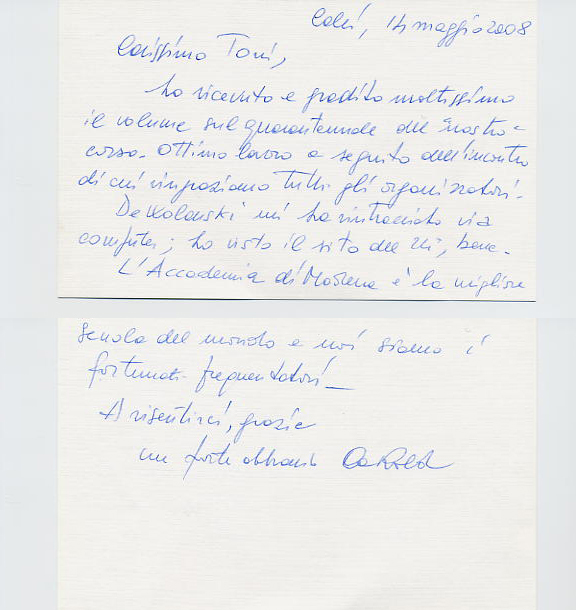 14 maggio 2008
Carissimo Toni,
ho ricevuto e gradito moltissimo
il volume sul quarantennale del nostro
corso. Ottimo lavoro a seguito dell'incontro
di cui ringraziamo tutti gli organizzatori.
mi ha rintracciato via
computer; ho visto il sito del bene.
L'Accademia di Modena è la migliore
scuola del mondo e noi siamo i
fortunati frequentatori_
A risentirci, grazie
un forte abbraccio